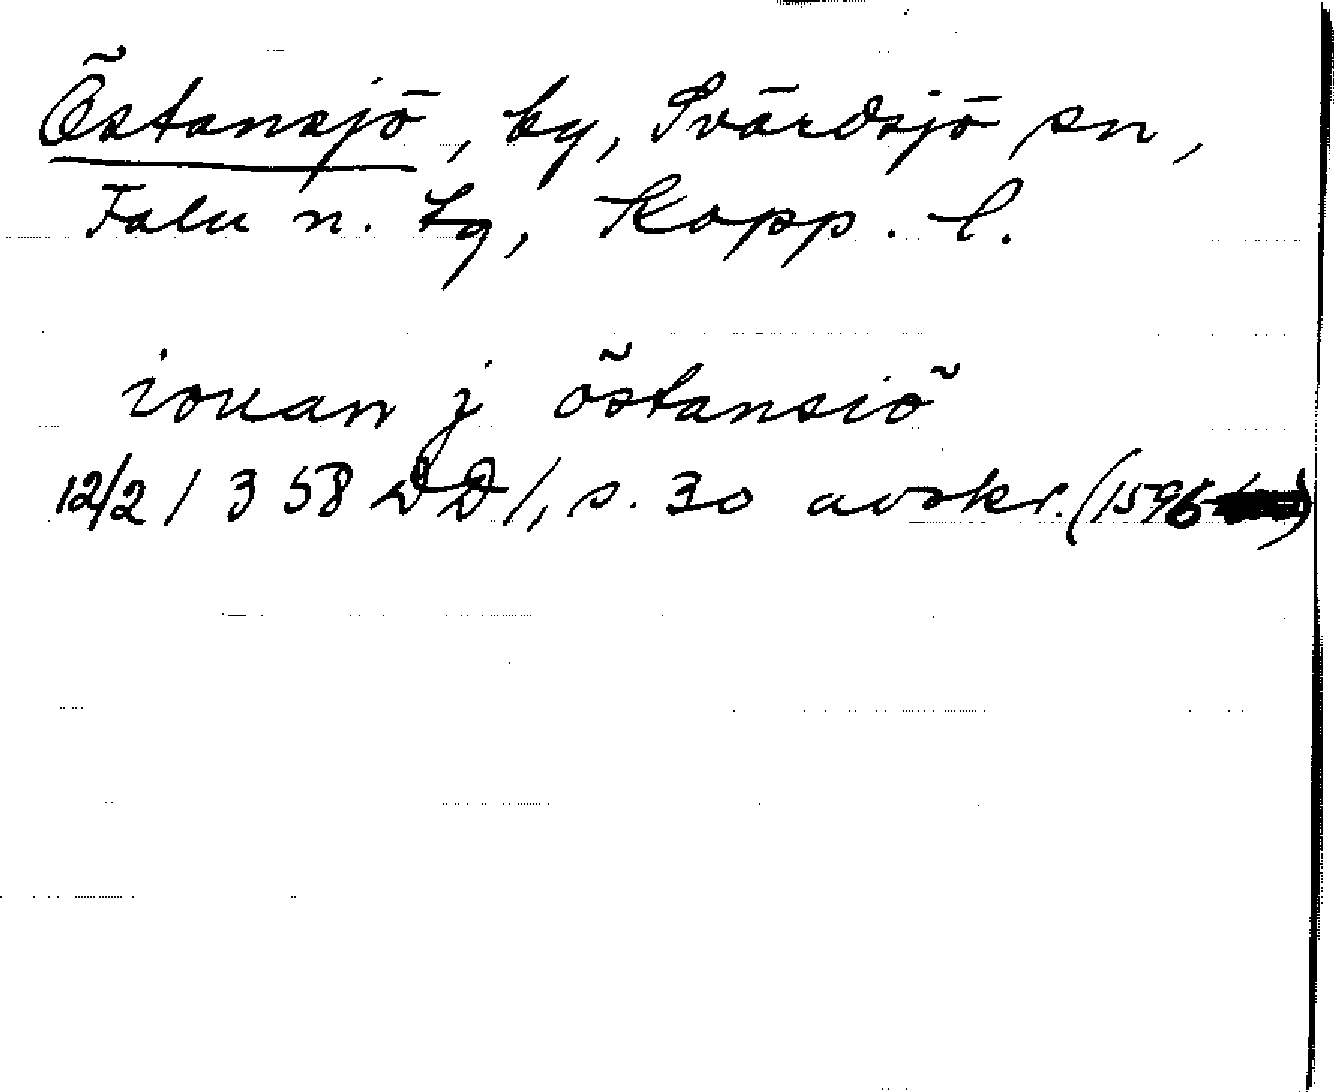 Östansjö, by, Svärdsjö sn,
Falu n. tg, Kopp. l.
iouan j östansiö
12/2 1358 DD 1, s. 30 avskr. (1596)